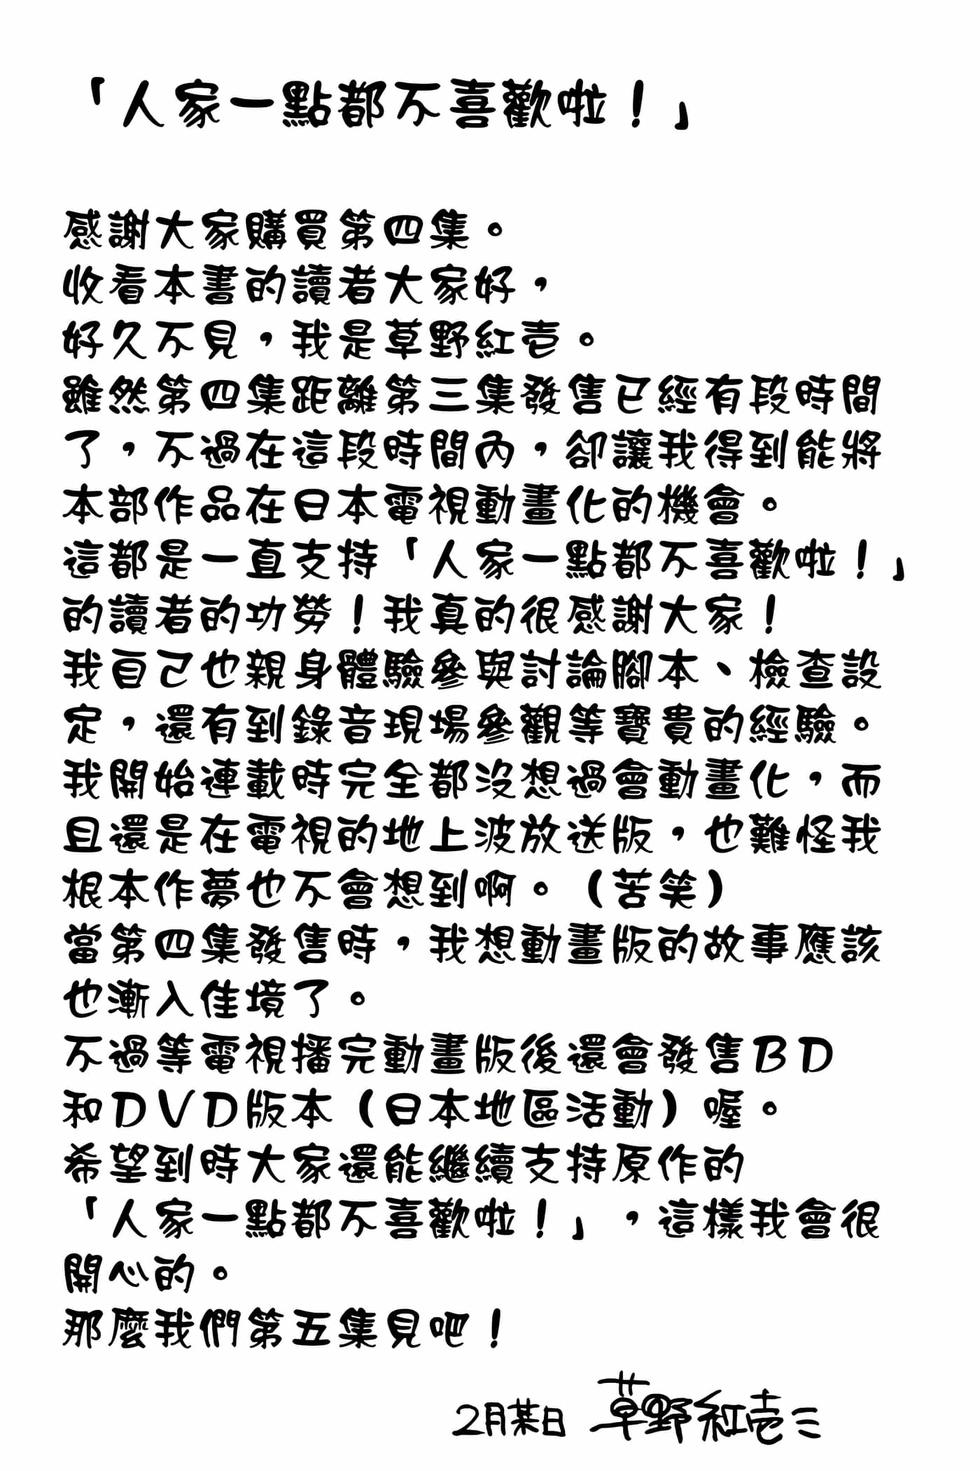 「人家一點都不喜歡啦！」
感謝大家購買第四集。
收看本書的讀者大家好，
好久不見，我是草野紅壱。
雖然第四集距離第三集發售已經有段時間
了，不過在這段時間內，卻讓我得到能將
本部作品在日本電視動畫化的機會。
這都是一直支持「人家一點都不喜歡啦！」
的讀者的功勞！我真的很感謝大家！
我自己也親身體驗參與討論腳本、檢查設
定，還有到錄音現場參觀等寶貴的經驗。
我開始連載時完全都沒想過會動畫化，而
且還是在電視的地上波放送版，也難怪我
根本作夢也不會想到啊。（苦笑）
當第四集發售時，我想動畫版的故事應該
也漸入佳境了。
不過等電視播完動畫版後還會發售ＢＤ
和ＤＶＤ版本（日本地區活動）喔。
希望到時大家還能繼續支持原作的
「人家一點都不喜歡啦！」，這樣我會很
開心的。
那麼我們第五集見吧！
2月某日 草野紅壱